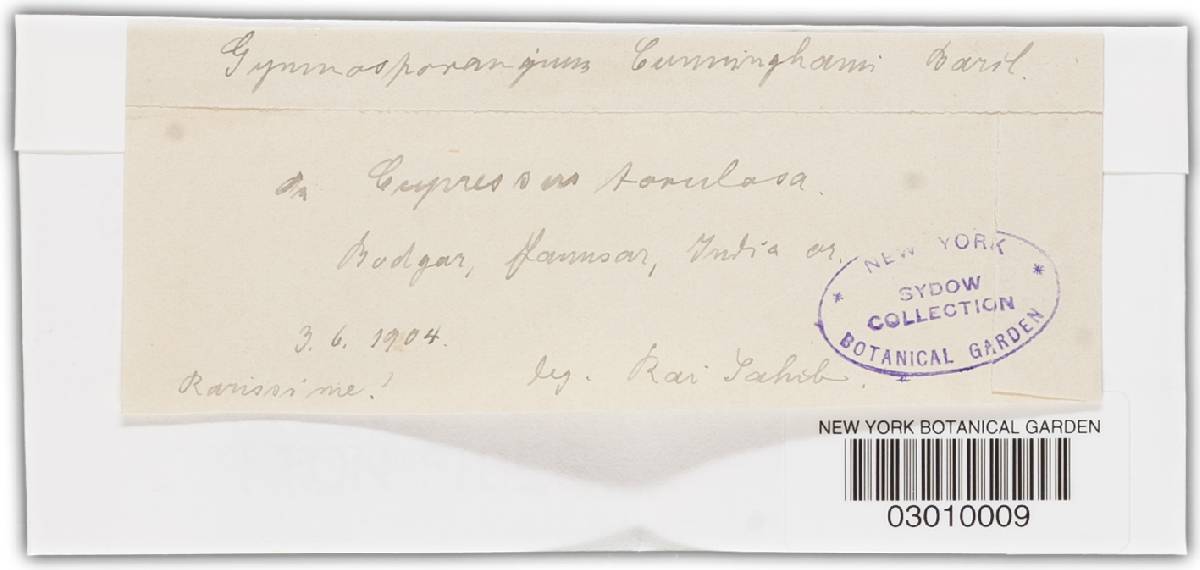 Gymnosporangium Cunninghami Barcl.
on Cupressus torulosa.
Bodgar, Jaunsar, India or.
3. 6. 1904.
Rarissime!
leg. Rai Sahib.
NEW YORK
SYDOW
COLLECTION
BOTANICAL GARDEN
NEW YORK BOTANICAL GARDEN
03010009